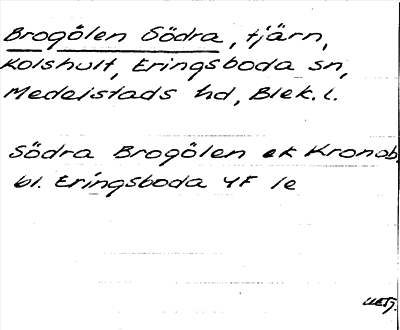 Brogölen Södra, tjärn,
Kolshult, Eringsboda sn,
Medelstads hd, Blek. l.
Södra Brogölen ek Kronob.
bl. Eringsboda 4F 1e